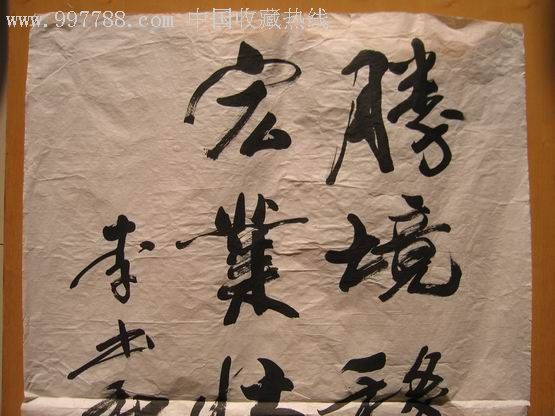 www.997788.com 中国收藏热线
勝境
宏業壯
李